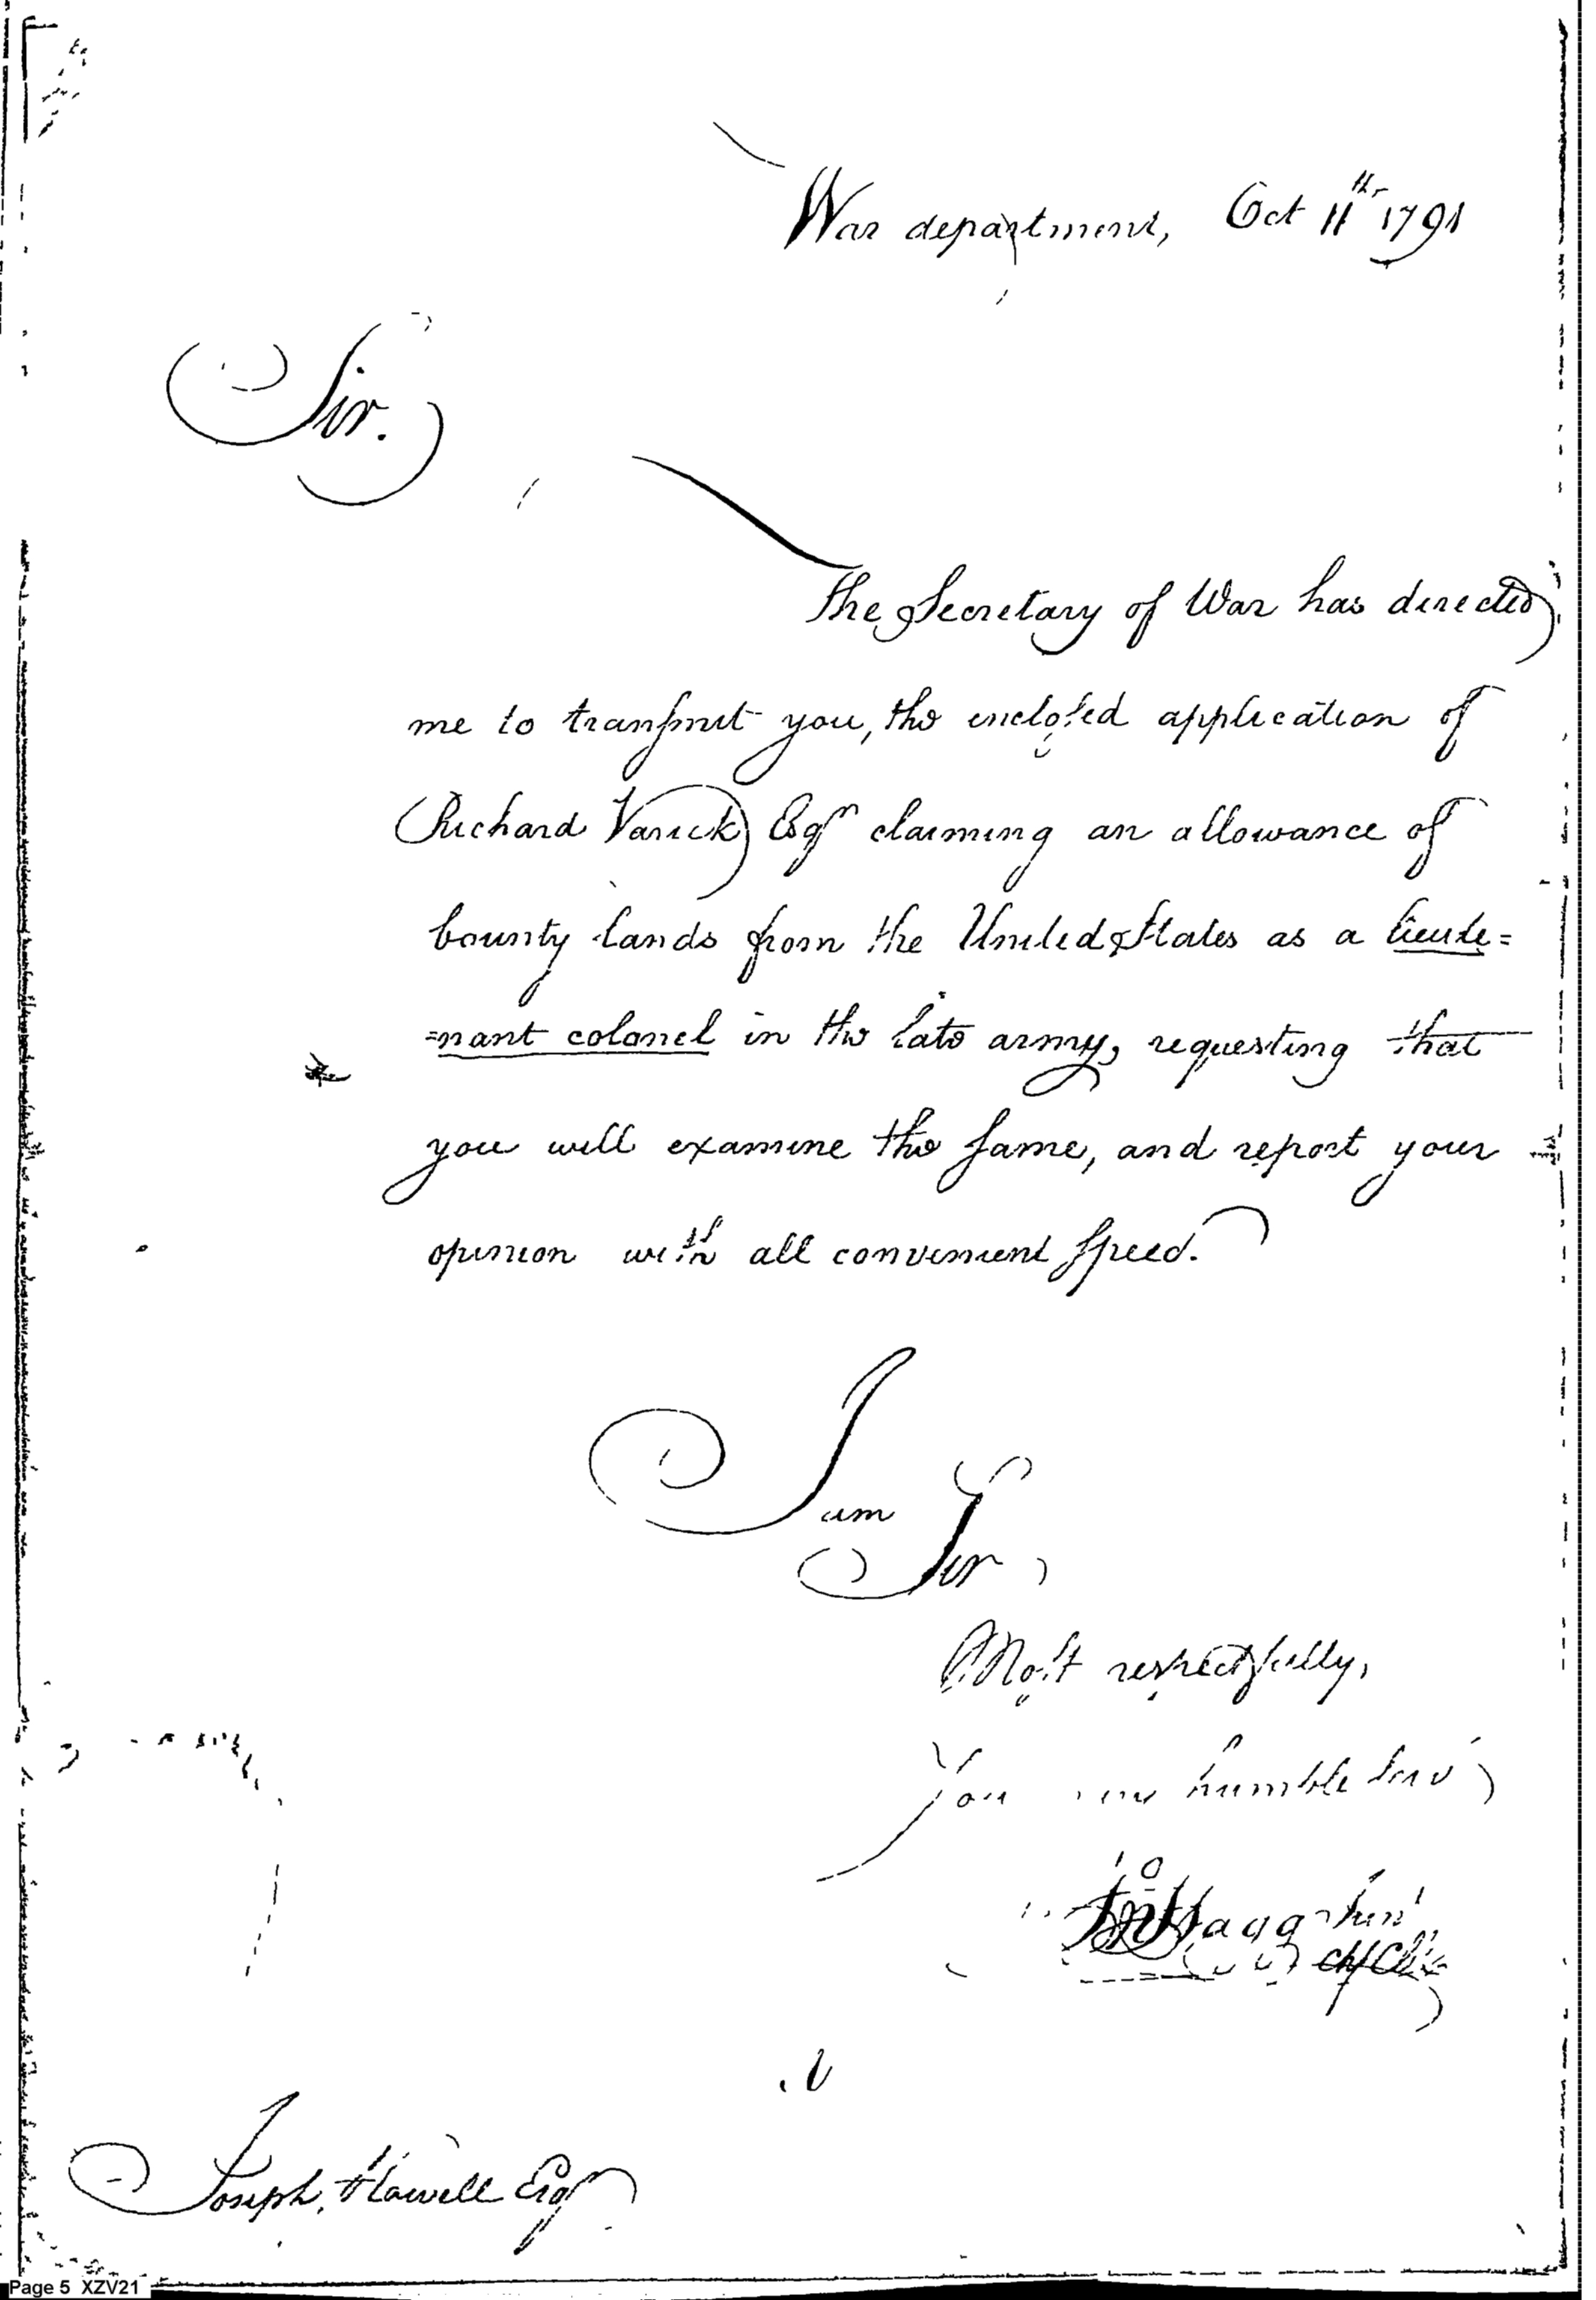 War department, Oct 11th 1791
Sir.
The Secretary of War has directed
me to transmit you, the inclosed application of
Richard Varick Esqr claiming an allowance of
bounty lands from the United States as a lieute=
=nant colonel in the late army, requesting that
you will examine the same, and report your
opinion with all convenient speed.
I am
Sir
Most respectfully,
humble serv
Jno Stagg Junr
Chf Clk
Joseph Howell Esqr
Page 5 XZV21